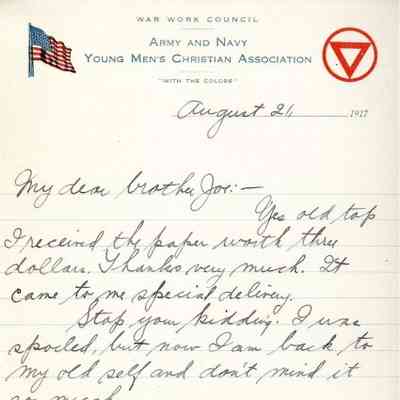 WAR WORK COUNCIL
ARMY AND NAVY
YOUNG MEN'S CHRISTIAN ASSOCIATION
"WITH THE COLORS"
August 21, 1917
My dear brother Joe:—
Yes old top
I received the paper worth three
dollars. Thanks very much. It
came to me special delivery.
Stop your kidding. I was
spoiled, but now I am back to
my old self and don't mind it
so much